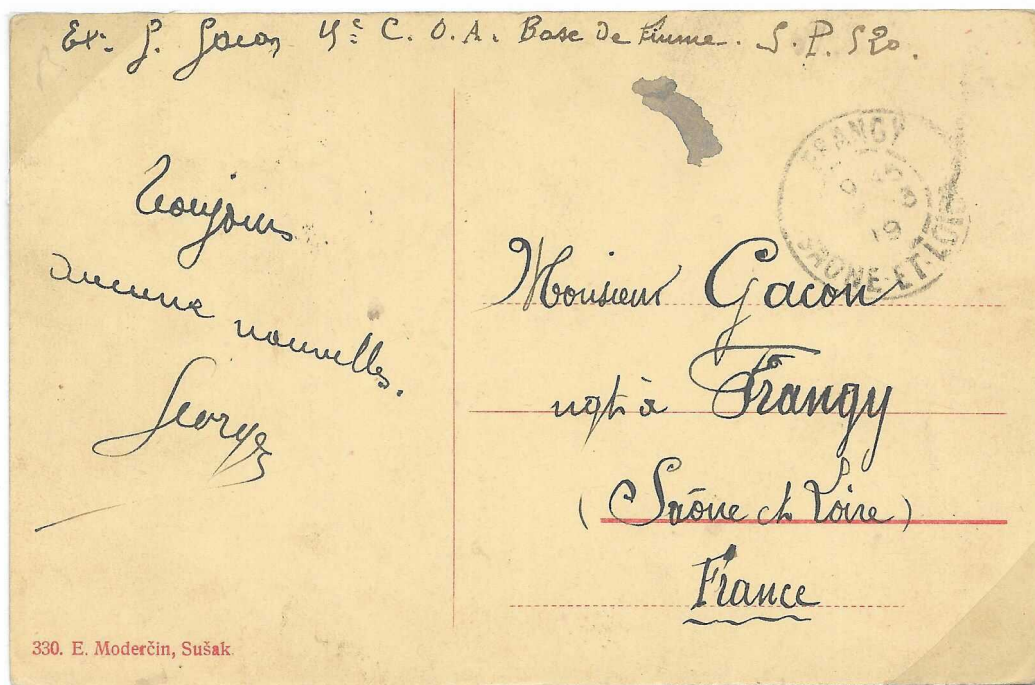 Ex: G. Gacon 4e C. O. A. Base De Fiume. S. P. 520.
Toujours
aucune nouvelles.
Georges
FRANGY
19
SAONE-ET-LOIRE
Monsieur Gacon
ngt à Frangy
(Saône et Loire)
France
330. E. Moderčin, Sušak